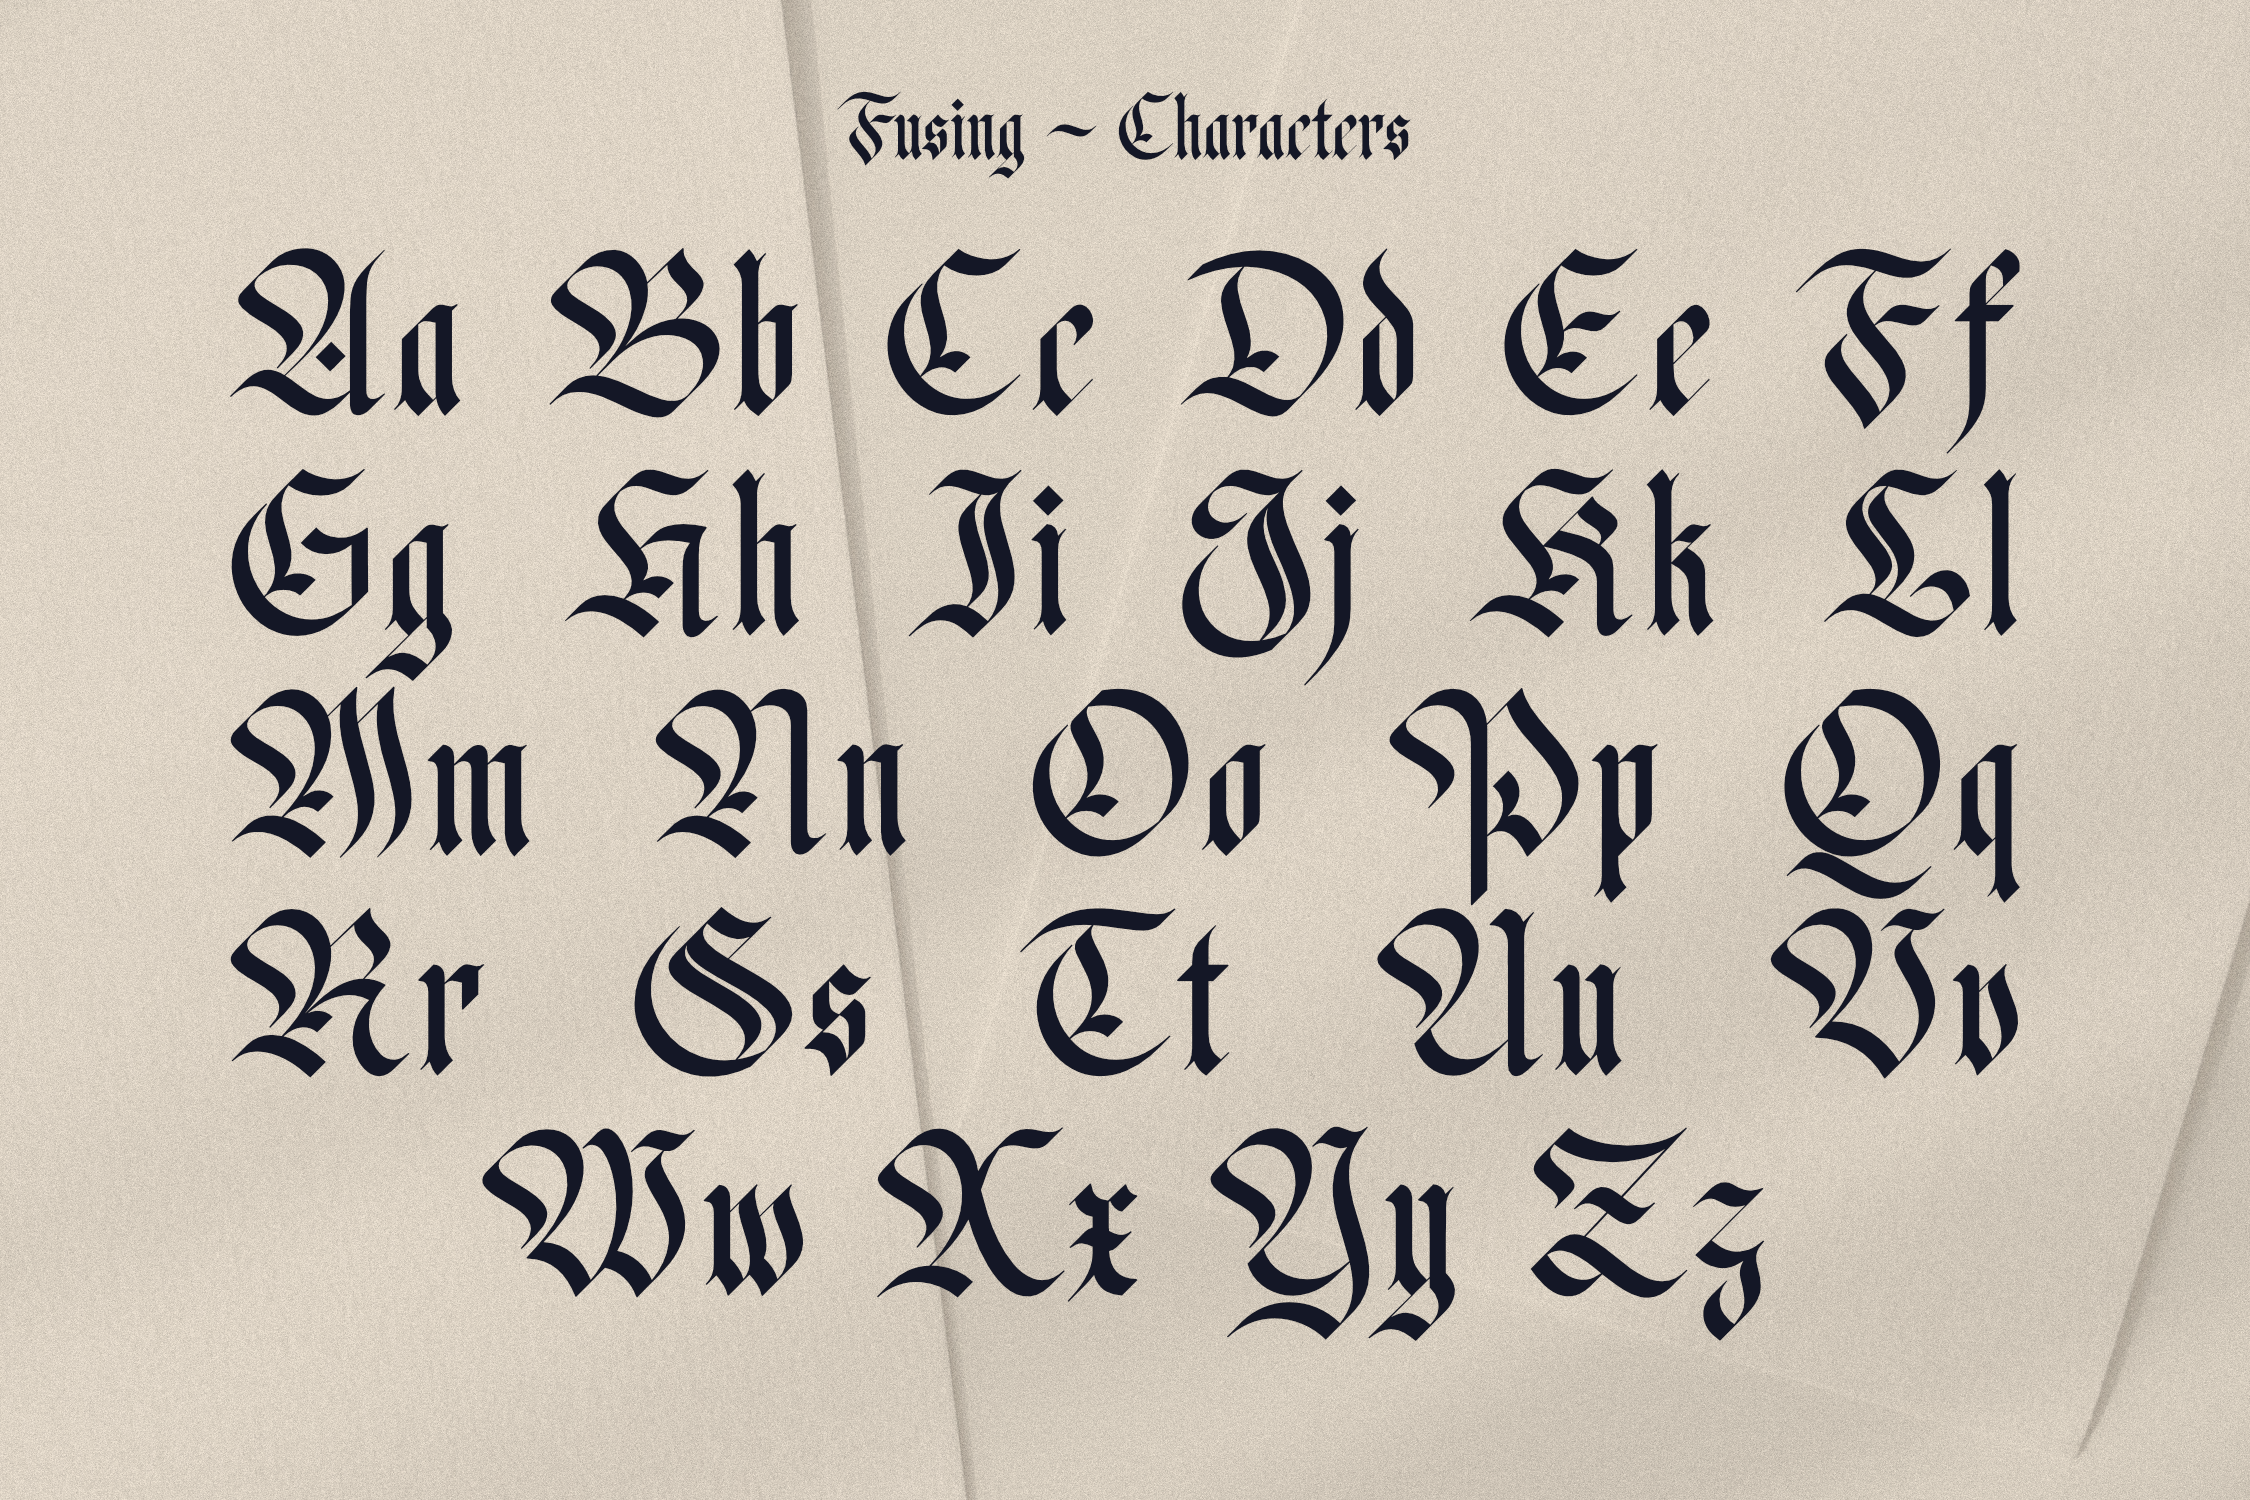 Fusing ~ Characters
Aa Bb Cc Dd Ee Ff
Gg Hh Ii Jj Kk Ll
Mm Nn Oo Pp Qq
Rr Ss Tt Uu Vv
Ww Xx Yy Zz